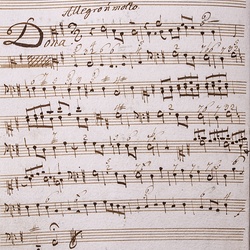 Allegro ñ molto
Dona